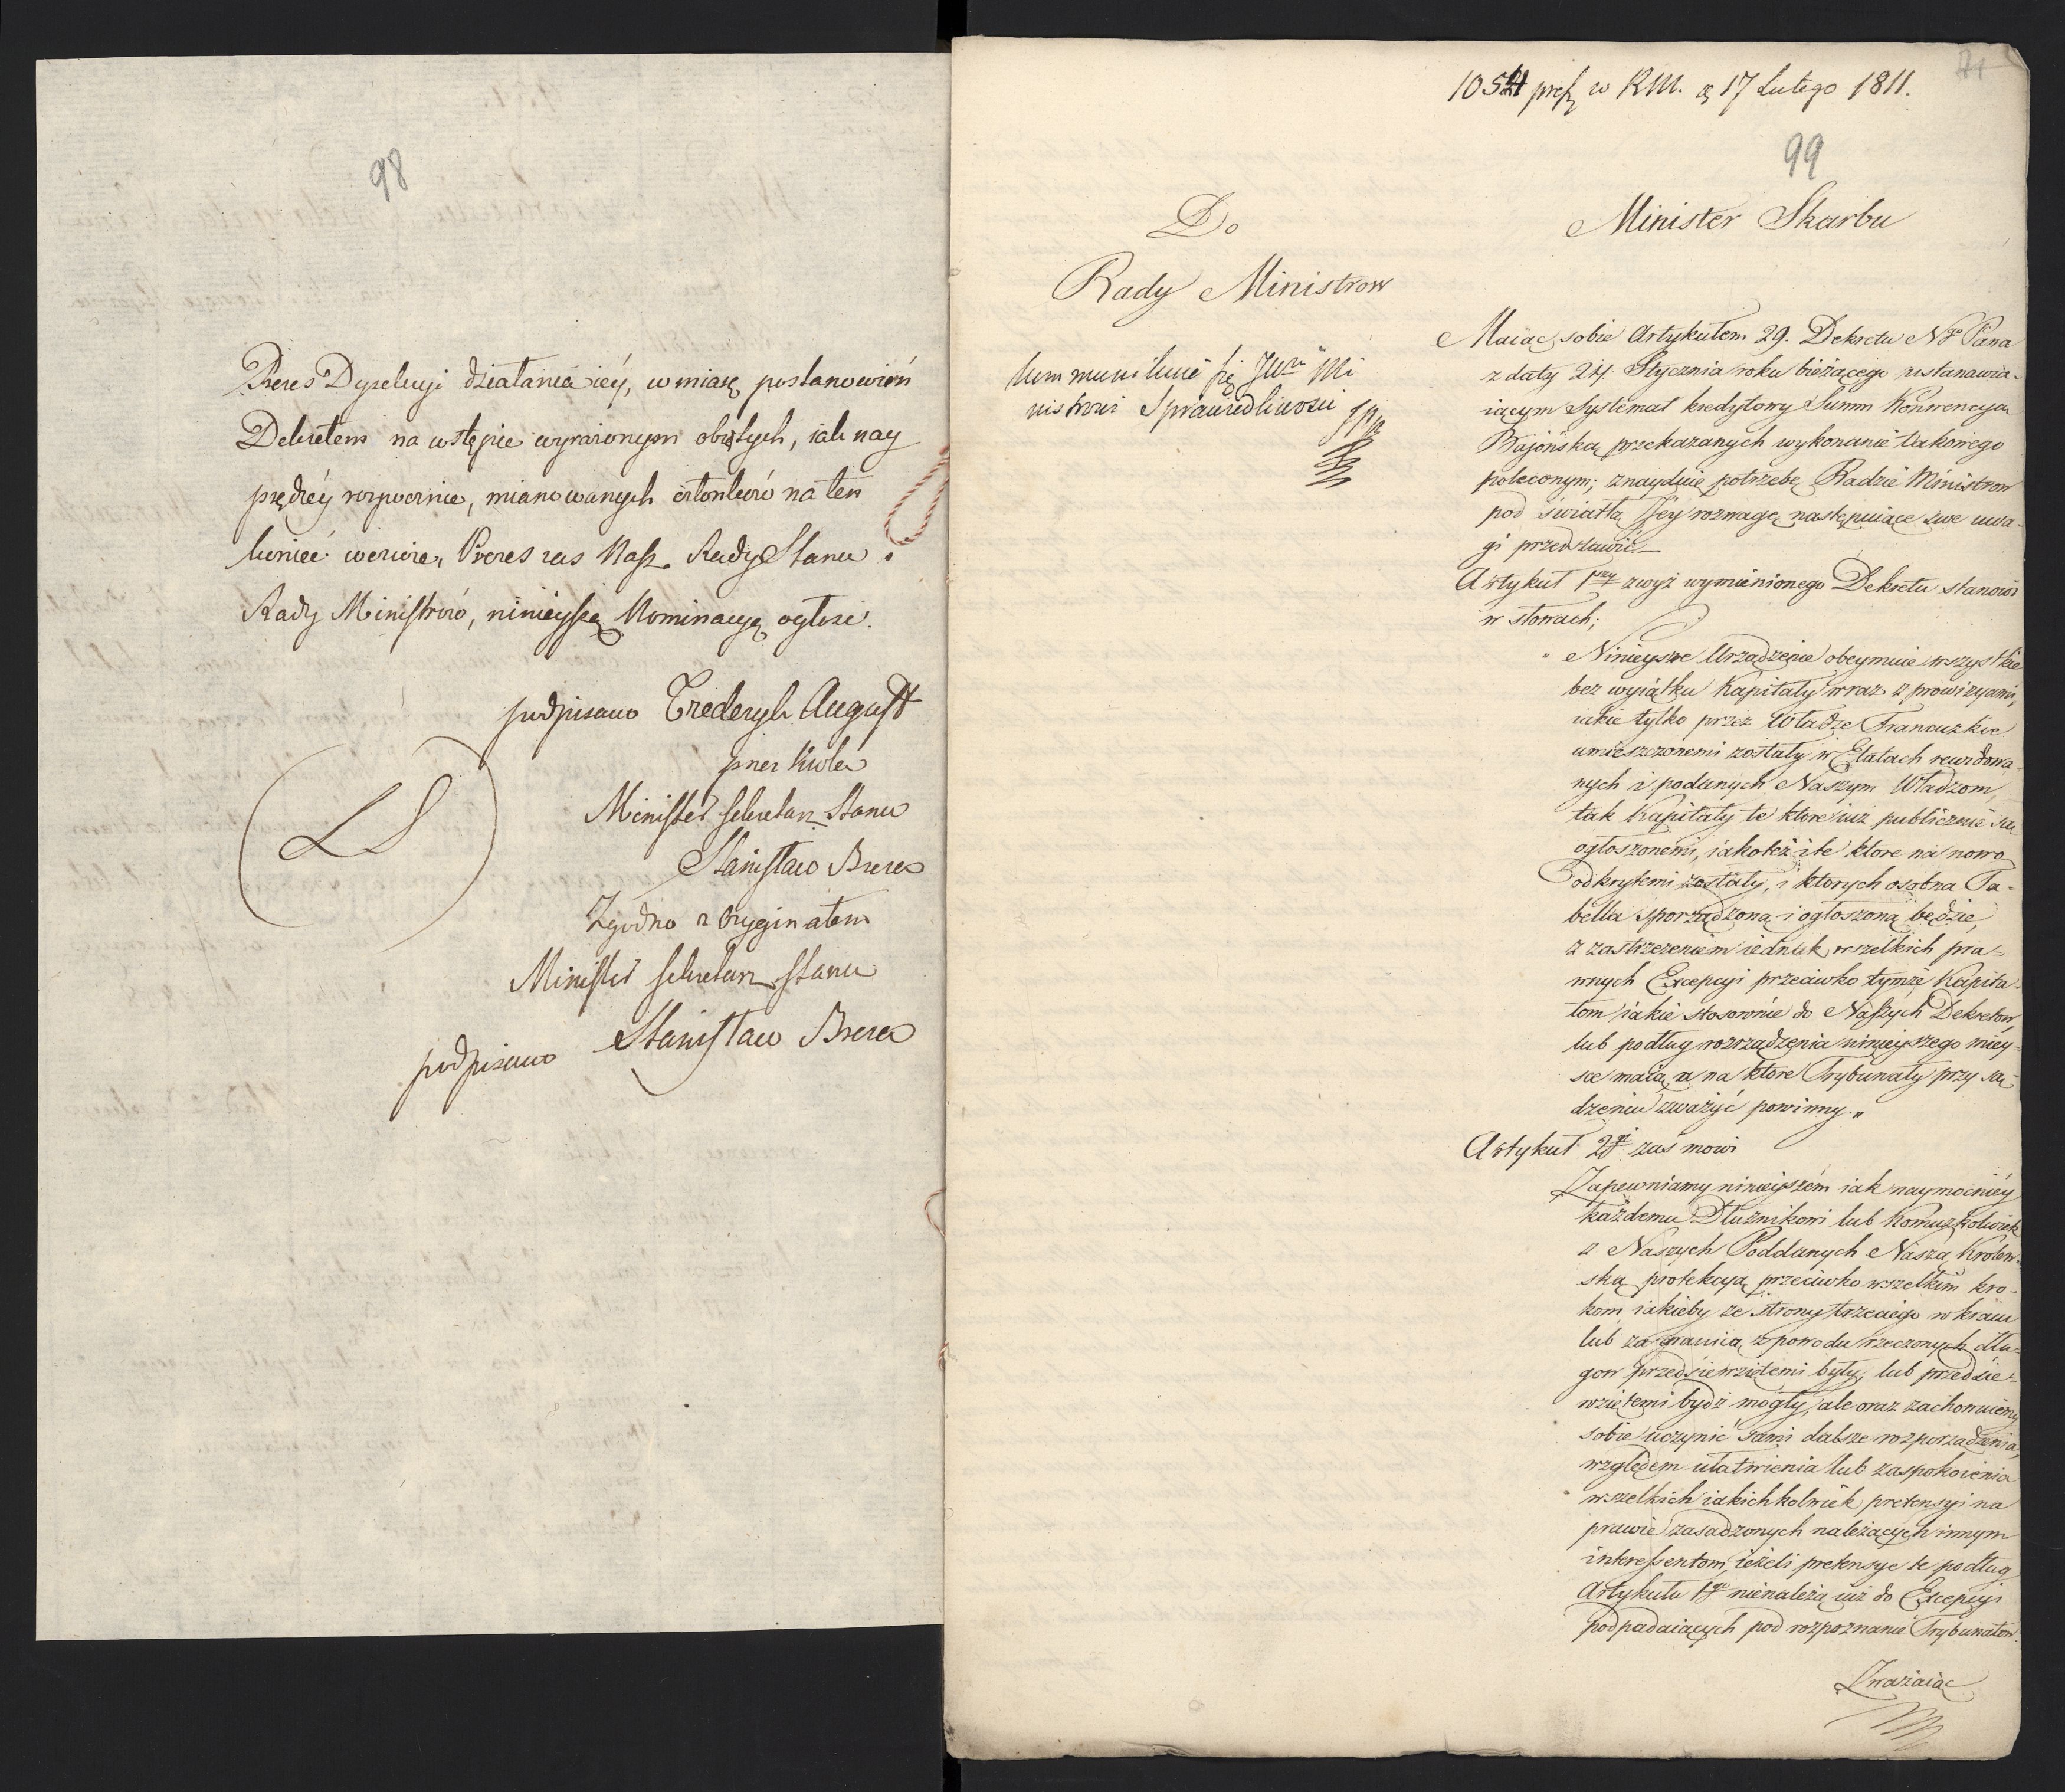 98
Prezes Dyrekcyi działania iey, w miarę postanowień
Dekretem na wstępie wyrażonym obiętych, iak nay
prędzey rozpocznie, mianowanych członków na ten
koniec wezwie, Prezes zas Nasz. Rady Stanu i
Rady Ministrów, ninieyszą Nominacyą ogłosi.
podpisano Frederyk August
przez Króla
Minister Sekretarz Stanu
Stanisław Breza
LS
Zgodno z Oryginałem
Minister Sekretarz Stanu
podpisano Stanisław Breza
71
prez w RM. d 17 Lutego 1811.
99
Do
Rady Ministrow
Kommunikuie się JW Mi
nistrowi Sprawiedliwosci
Minister Skarbu
Maiąc sobie Artykułem 29. Dekretu Ngo Pana
z daty 24. Stycznia roku bieżącego ustanawia-
iącym Systemat kredytowy Summ Konwencyą
Bajońską przekazanych wykonanie takowego
poleconym; znayduię potrzebę Radzie Ministrow
pod światłą Jey rozwagę następuiące swe uwa-
gi przedstawić.
Artykuł 1szy zwyż wymienionego Dekretu stanowi
w słowach;
" Ninieysze Urządzenie obeymuie wszystkie
bez wyiątku Kapitały wraz z prowizyami,
iakie tylko przez Władze Francuzkie
umieszczonemi zostały w Etatach rewidowa-
nych i podanych Naszym Władzom,
tak Kapitały te ktore iuż publicznie są
ogłoszonemi, iakoteż i te ktore na nowo
odkrytemi zostały, i ktorych osobna Ta-
bella sporządzoną i ogłoszoną będzie,
z zastrzeżeniem iednak wszelkich pra-
wnych Excepcyi przeciwko tymże Kapita-
łom iakie stosownie do Naszych Dekretow
lub podług rozrządzenia ninieyszego miey-
sce maią a na ktore Trybunały przy są-
dzeniu zważyć powinny."
Artykuł 2gi zaś mowi
Zapewniamy ninieyszém iak naymocniey
każdemu Dłużnikowi lub Komużkolwiek
z Naszych Poddanych Naszą Królew-
ską protekcyą przeciwko wszelkim kro-
kom iakieby ze strony trzeciego w kraiu
lub za granicą z powodu rzeczonych dłu-
gow przedsięwziętemi były, lub przedsię-
wziętemi bydź mogły, ale oraz zachowuiemy
sobie uczynić sami dalsze rozporządzenia,
względem ułatwienia lub zaspokoienia
wszelkich iakichkolwiek pretensyi na
prawie zasadzonych należących innym
interessentom, ieżeli pretensye te podług
Artykułu 1go nienależą iuż do Excepcyi
podpadaiących pod rozpoznanie Trybunałow.
Zważaiąc